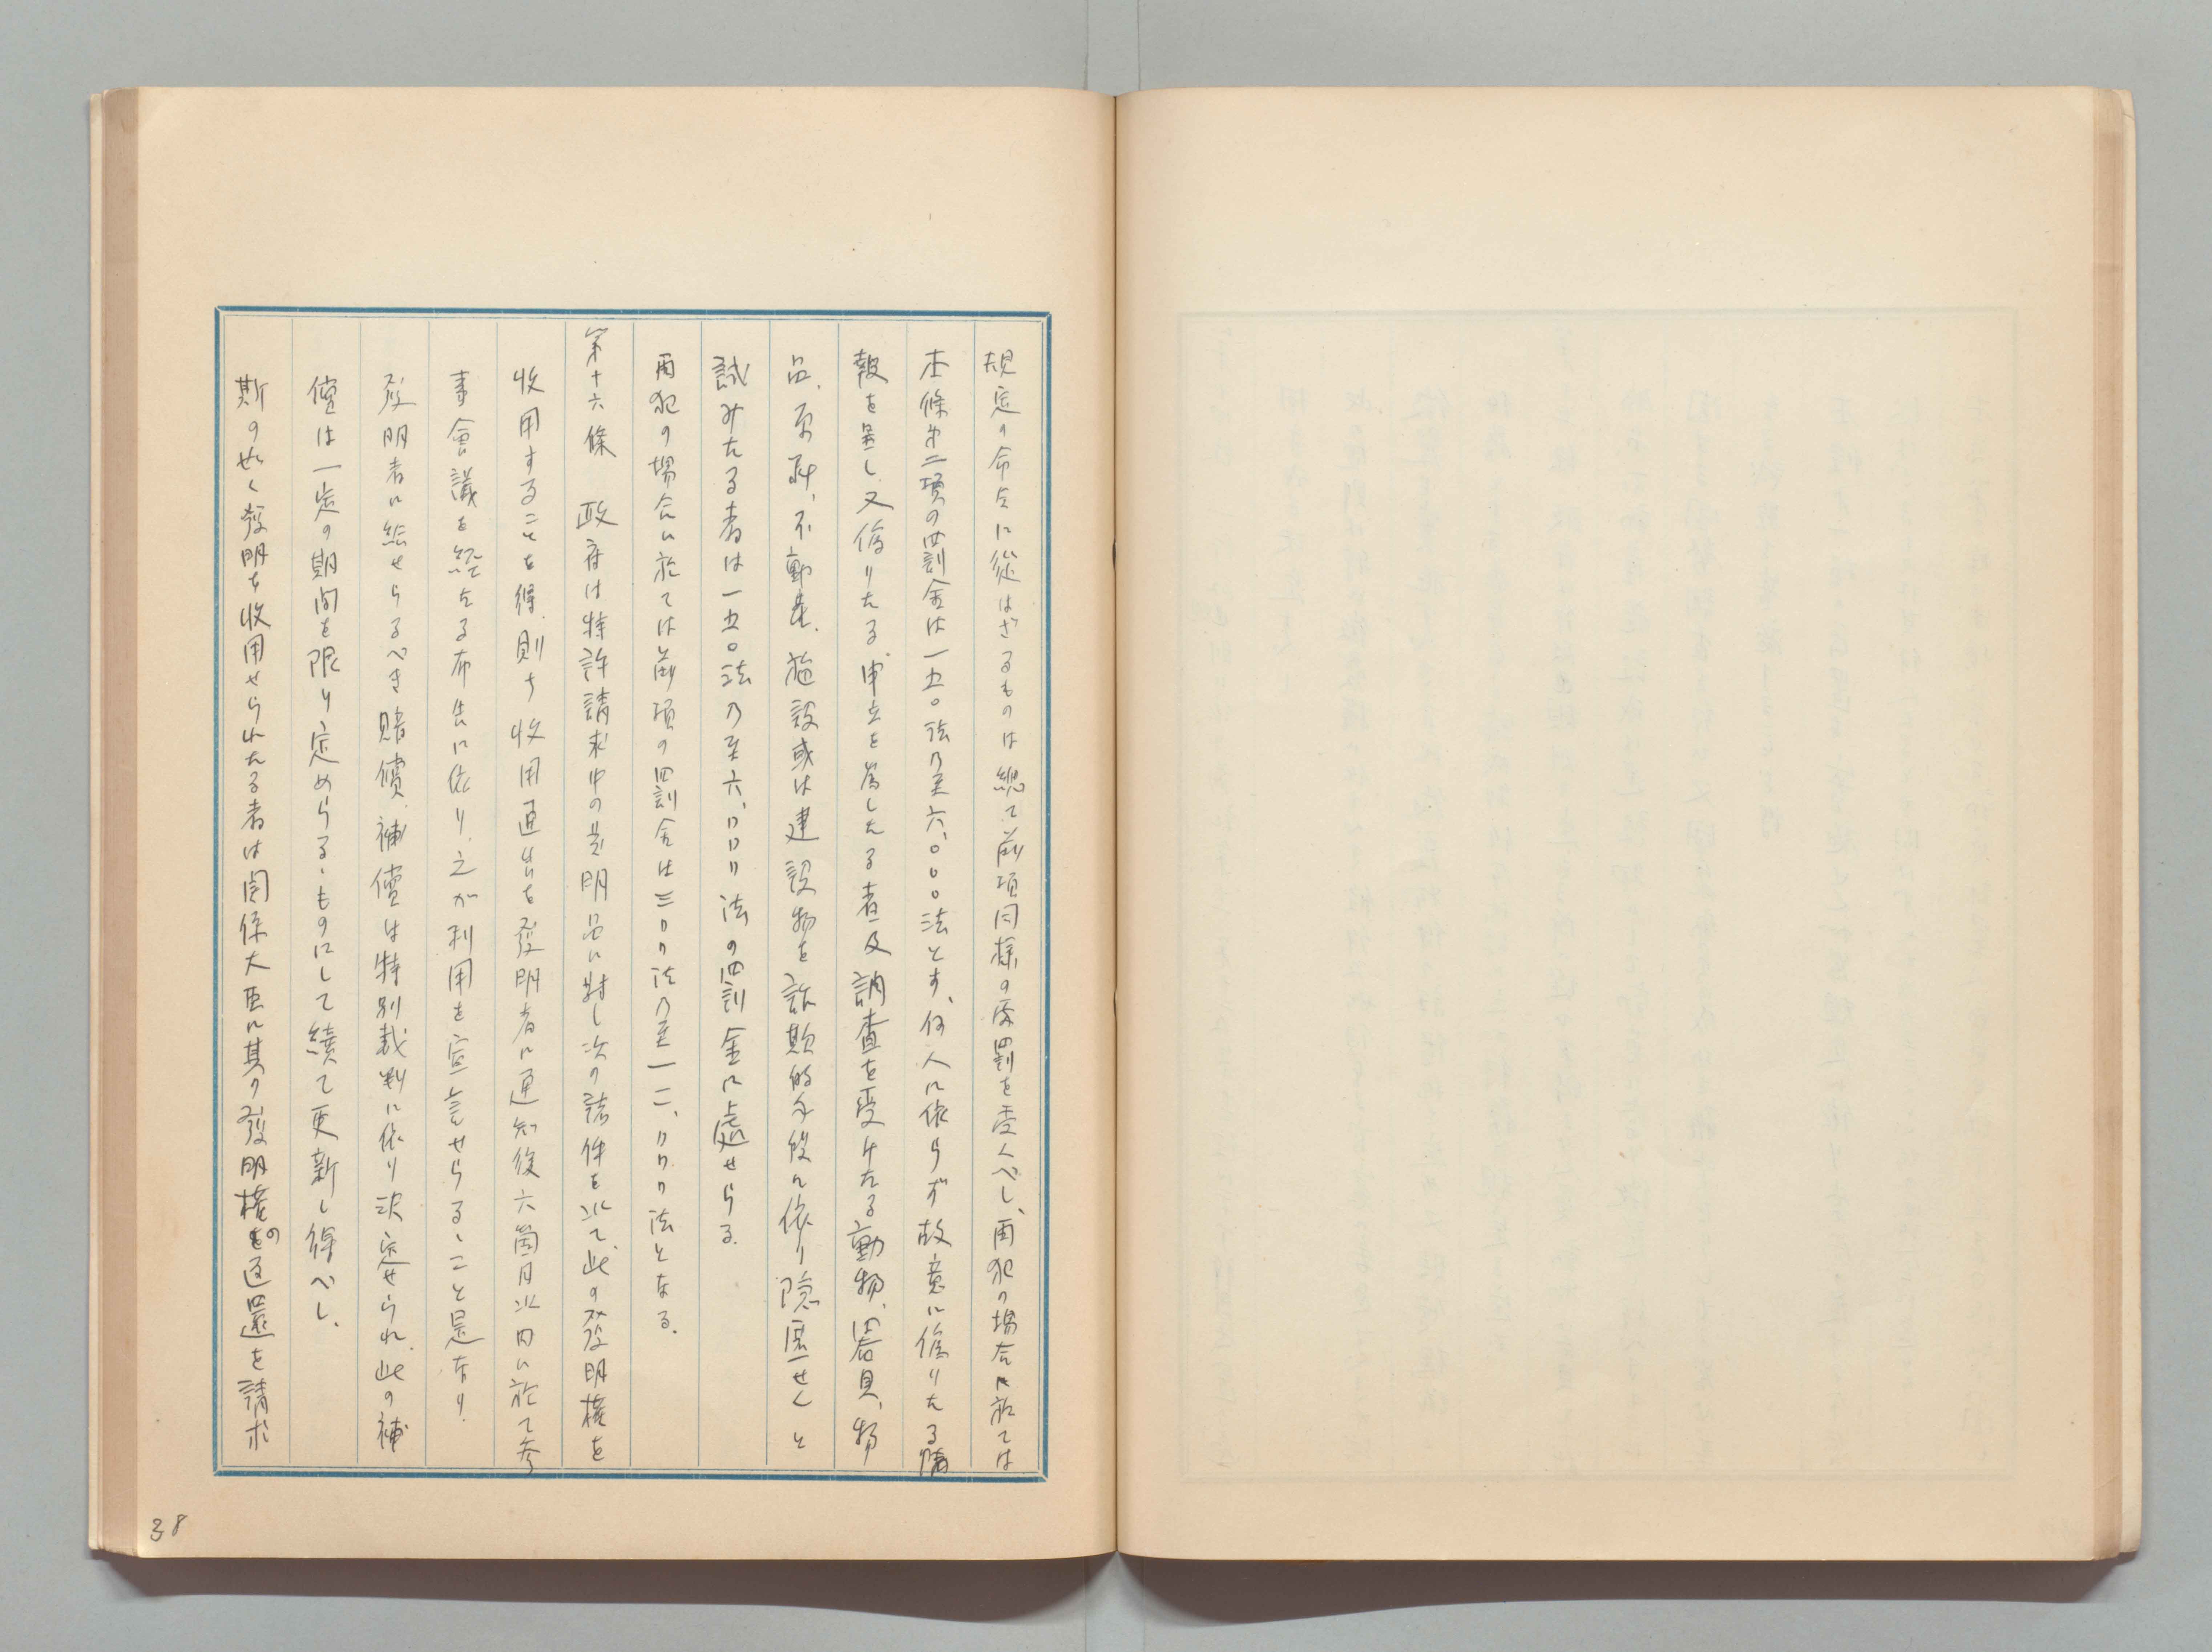 規定の命令に從はざるものは總て前項同様の處罰を受くべし、再犯の場合に於ては
本條第二項の罰金は一五〇法乃至六、〇〇〇法とす、何人に依らず故意に偽りたる情
報を呈し又偽りたる申立を為したる者及調査を受けたる動物、器具、物
品、原料、不動産、施設或は建設物を詐欺的手段に依り隠匿せんと
試みたる者は一五〇法乃至六、〇〇〇法の罰金に處せらる。
再犯の場合に於ては前項の罰金は三〇〇法乃至一二、〇〇〇法となる。
第十六條 政府は特許請求中の発明品に對し次の諸件を以て此の發明権を
收用することを得、則ち收用通告を發明者に通知後六箇月以内に於て参
事會議を経たる布告に依り、之が利用を宣言せらるゝこと是なり。
發明者に給せらるべき賠償、補償は特別裁判に依り決定せられ、此の補
償は一定の期間を限り定めらるゝものにして續て更新し得べし。
斯の如く發明を收用せられたる者は関係大臣に其の發明権の返還を請求
38